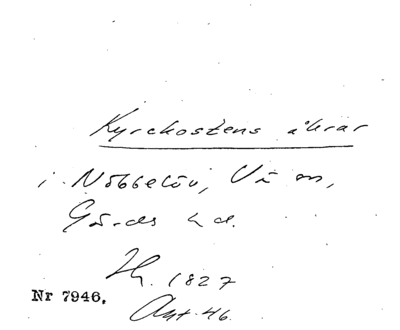 Kyrkostens åkrar
i Nöbbelöv, Vä sn,
Gä-ds hd.
Hg. 1827
Nr 7946.
Akt. 46